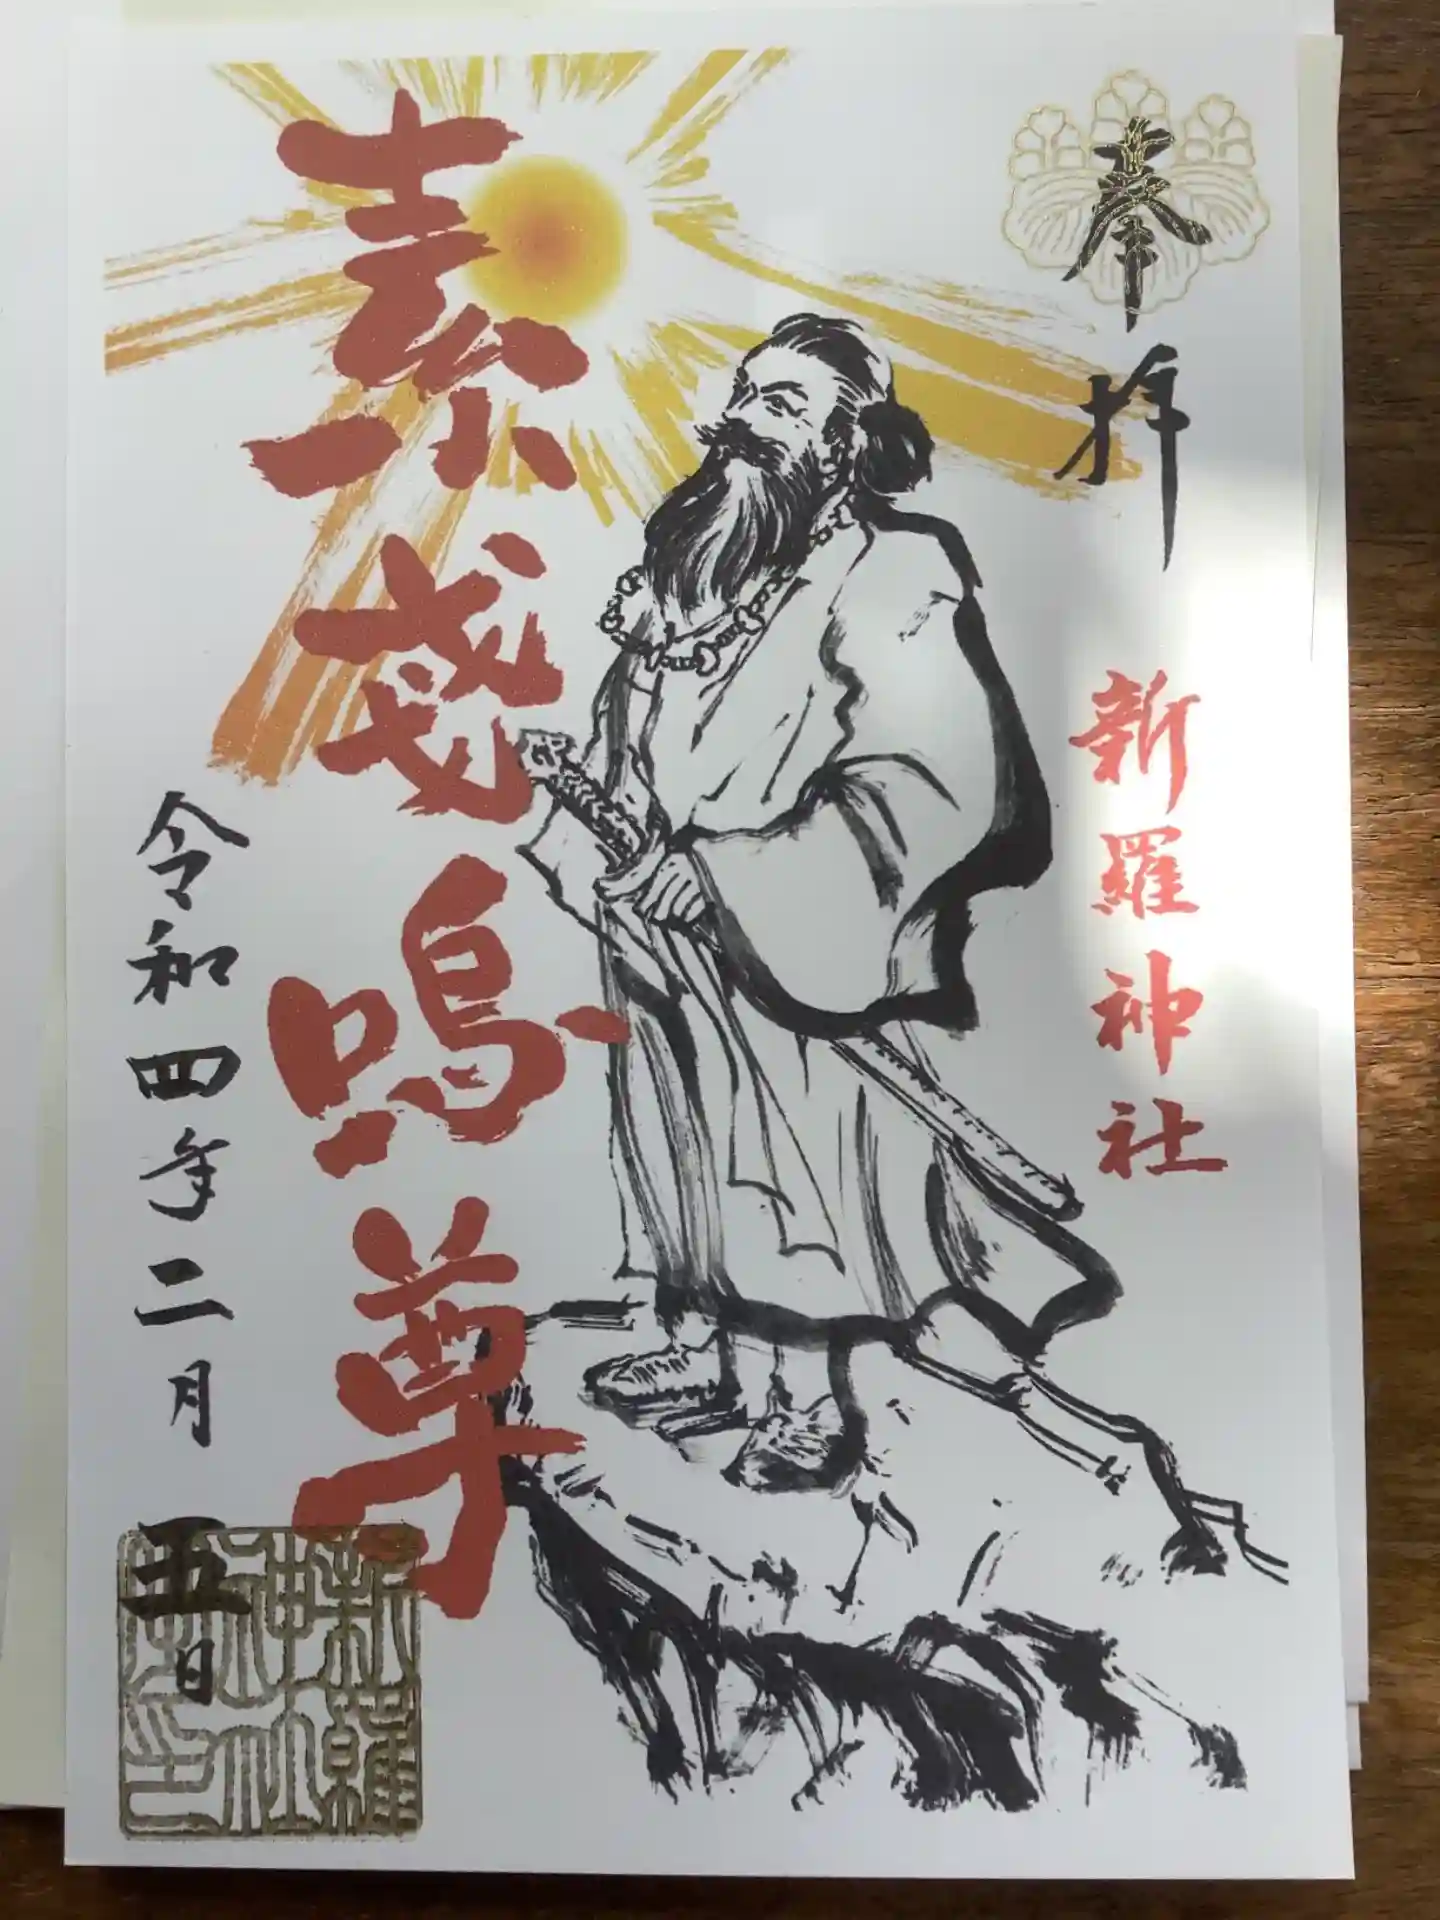 奉拝
新羅神社
素戔嗚尊
令和四年二月五日
新羅神社之印